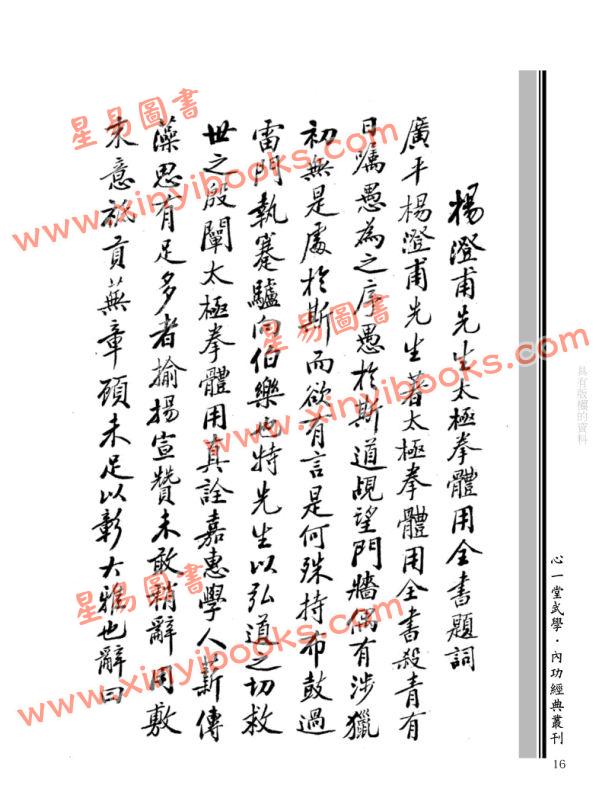 楊澄甫先生太極拳體用全書題詞
廣平楊澄甫先生著太極拳體用全書殺青有
日囑愚為之序愚於斯道覘望門牆偶有涉獵
初無是處於斯而欲有言是何殊持布鼓過
雷門執蹇驢向伯樂也特先生以弘道之切救
世之殷闡太極拳體用真詮嘉惠學人薪傳
藻思有足多者揄揚宣贊未敢稍辭用敷
來意祇貢蕪章碩未足以彰大雅也辭曰
具有版權的資料
心一堂武學·內功經典叢刊
16
星易圖書
www.xinyibooks.com
星易圖書
www.xinyibooks.com
星易圖書
www.xinyibooks.com